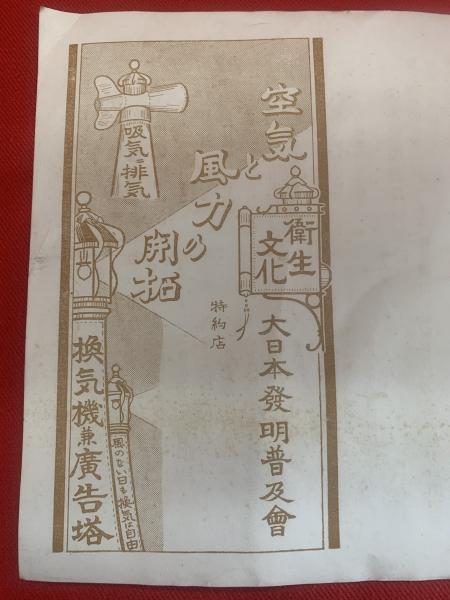 空気と
風力の
開拓
衛生
文化
特約店
大日本發明普及會
吸気と排気
換気機兼廣告塔
風のない日も換気は自由